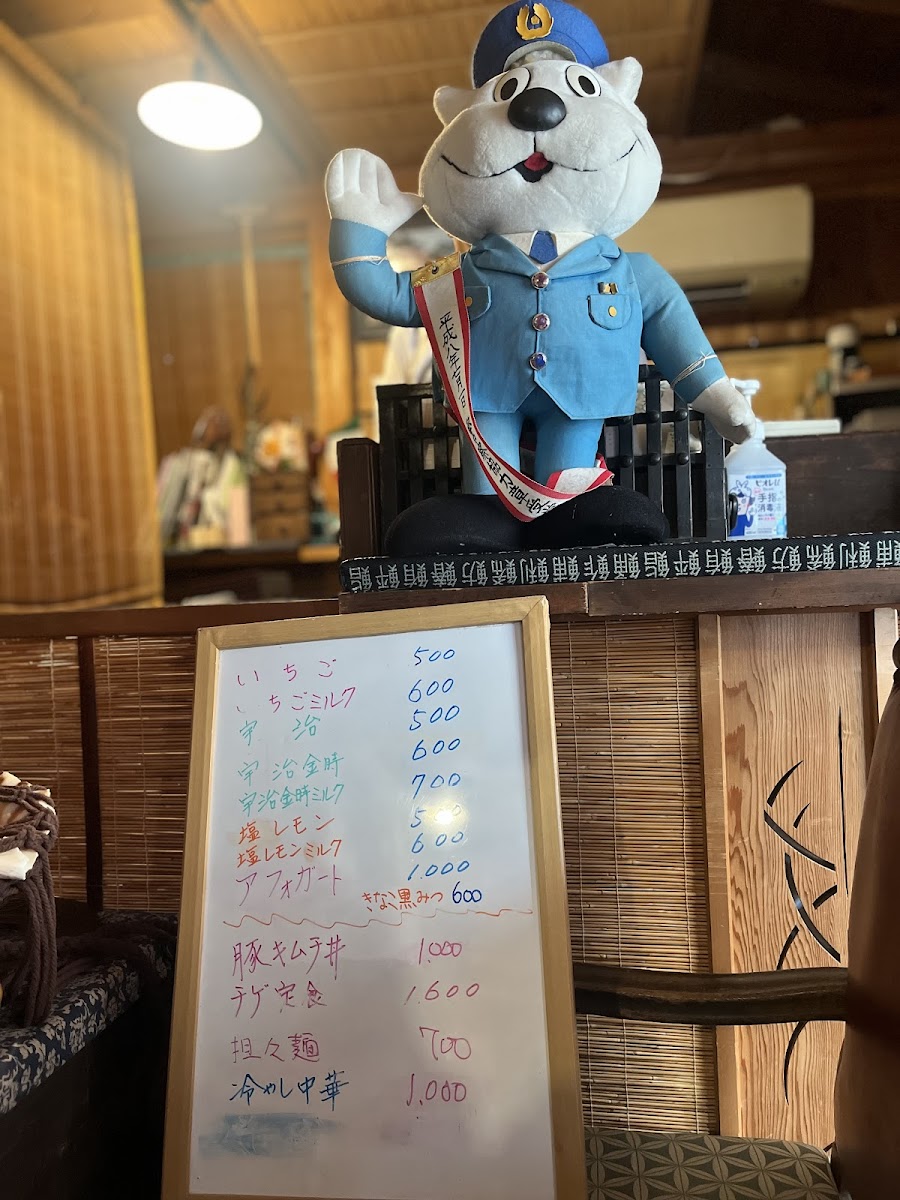 平成八年七月一日
ビオレu
手指
消毒
いちご 500
いちごミルク 600
宇治 500
宇治金時 600
宇治金時ミルク 700
塩レモン
塩レモンミルク 600
アフォガート 1.000
きなこ黒みつ 600
豚キムチ丼 1.000
チゲ定食 1.600
担々麺 700
冷やし中華 1.000